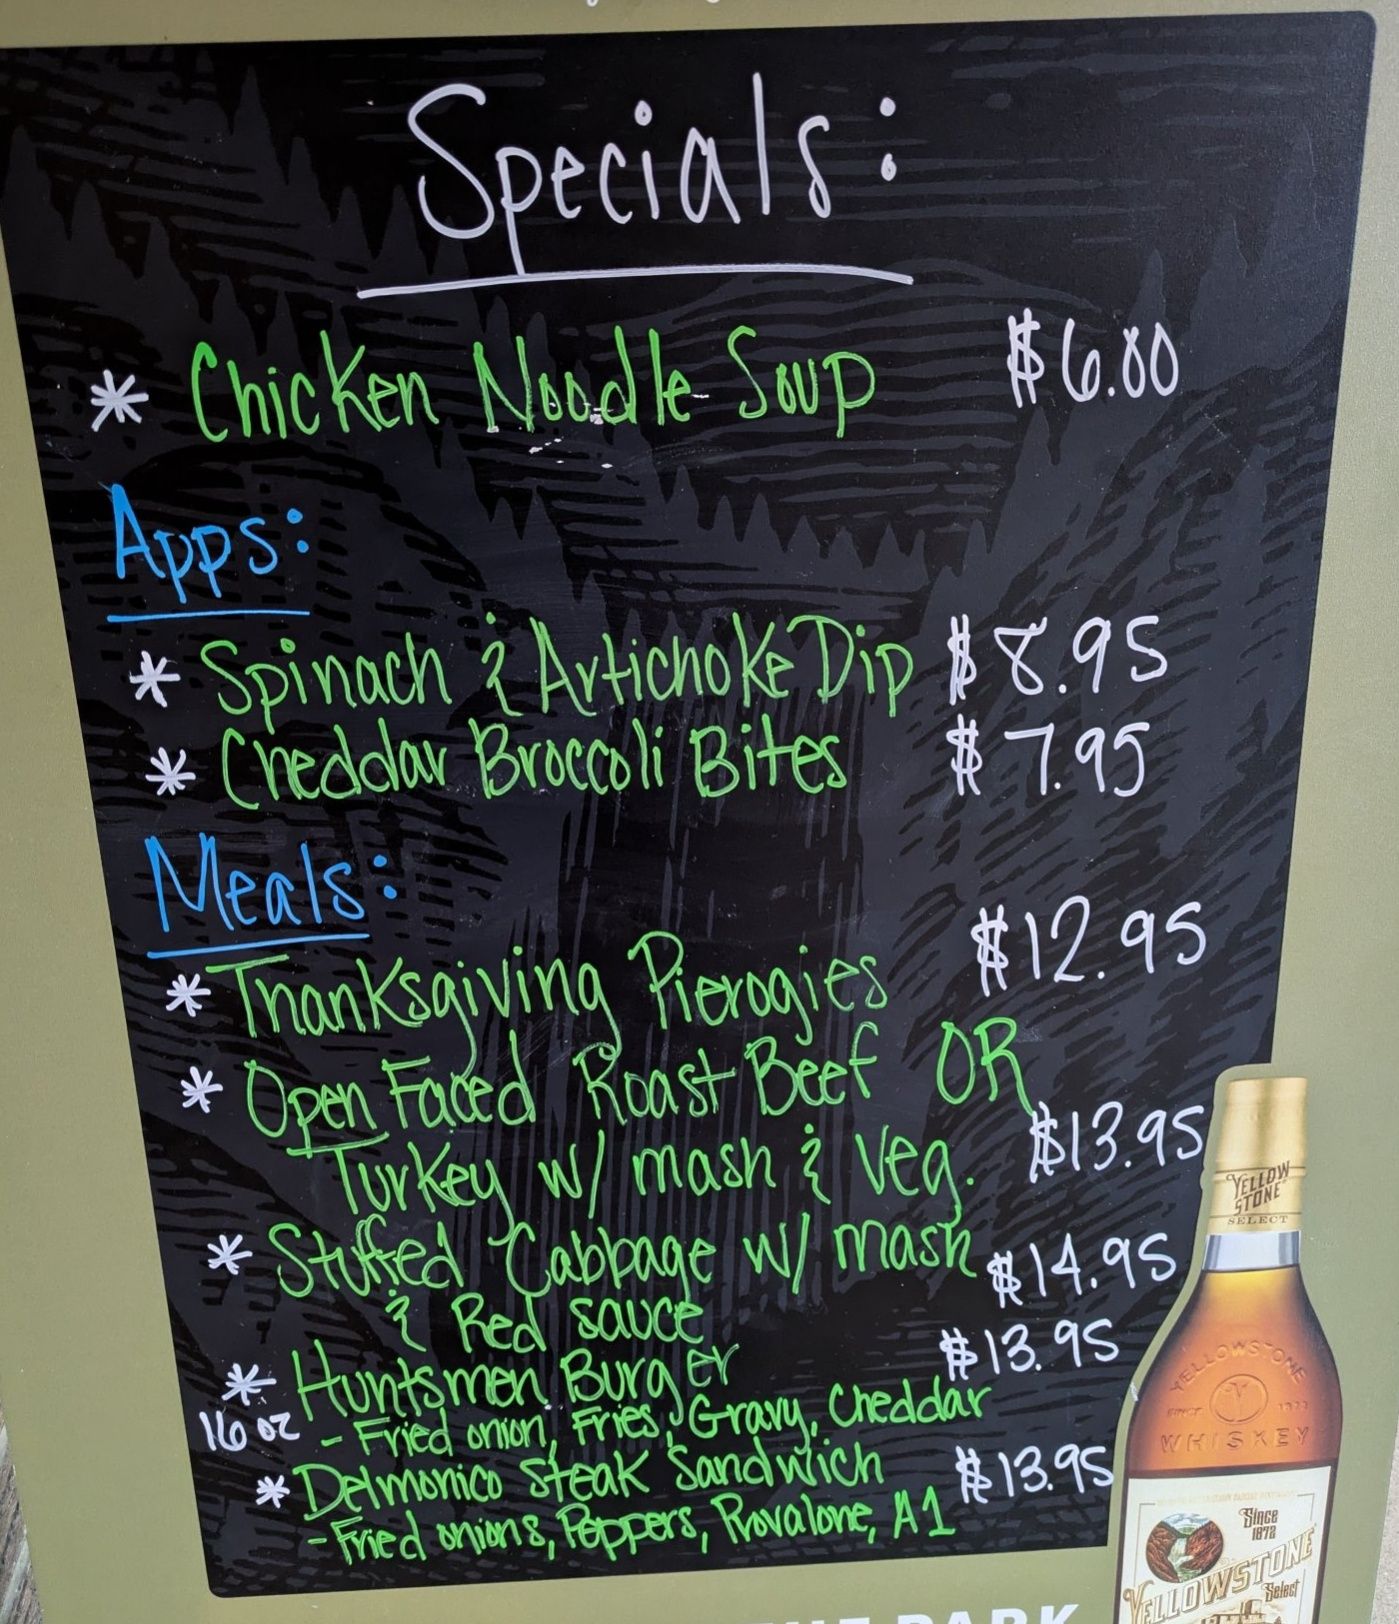 Specials:
* Chicken Noodle Soup $6.00
Apps:
* Spinach & Artichoke Dip $8.95
* Cheddar Broccoli Bites $7.95
Meals:
* Thanksgiving Pierogies $12.95
* Open Faced Roast Beef OR
Turkey w/ mash & veg. $13.95
* Stuffed Cabbage w/ mash $14.95
& Red sauce
* Huntsmen Burger $13.95
16 oz - Fried onion, Fries, Gravy, Cheddar
* Delmonico Steak Sandwich $13.95
- Fried onions, Peppers, Provalone, A1
YELLOW
STONE
SELECT
YELLOWSTONE
SINCE 1872
WHISKEY
Since
1872
YELLOWSTONE
Select
PARK